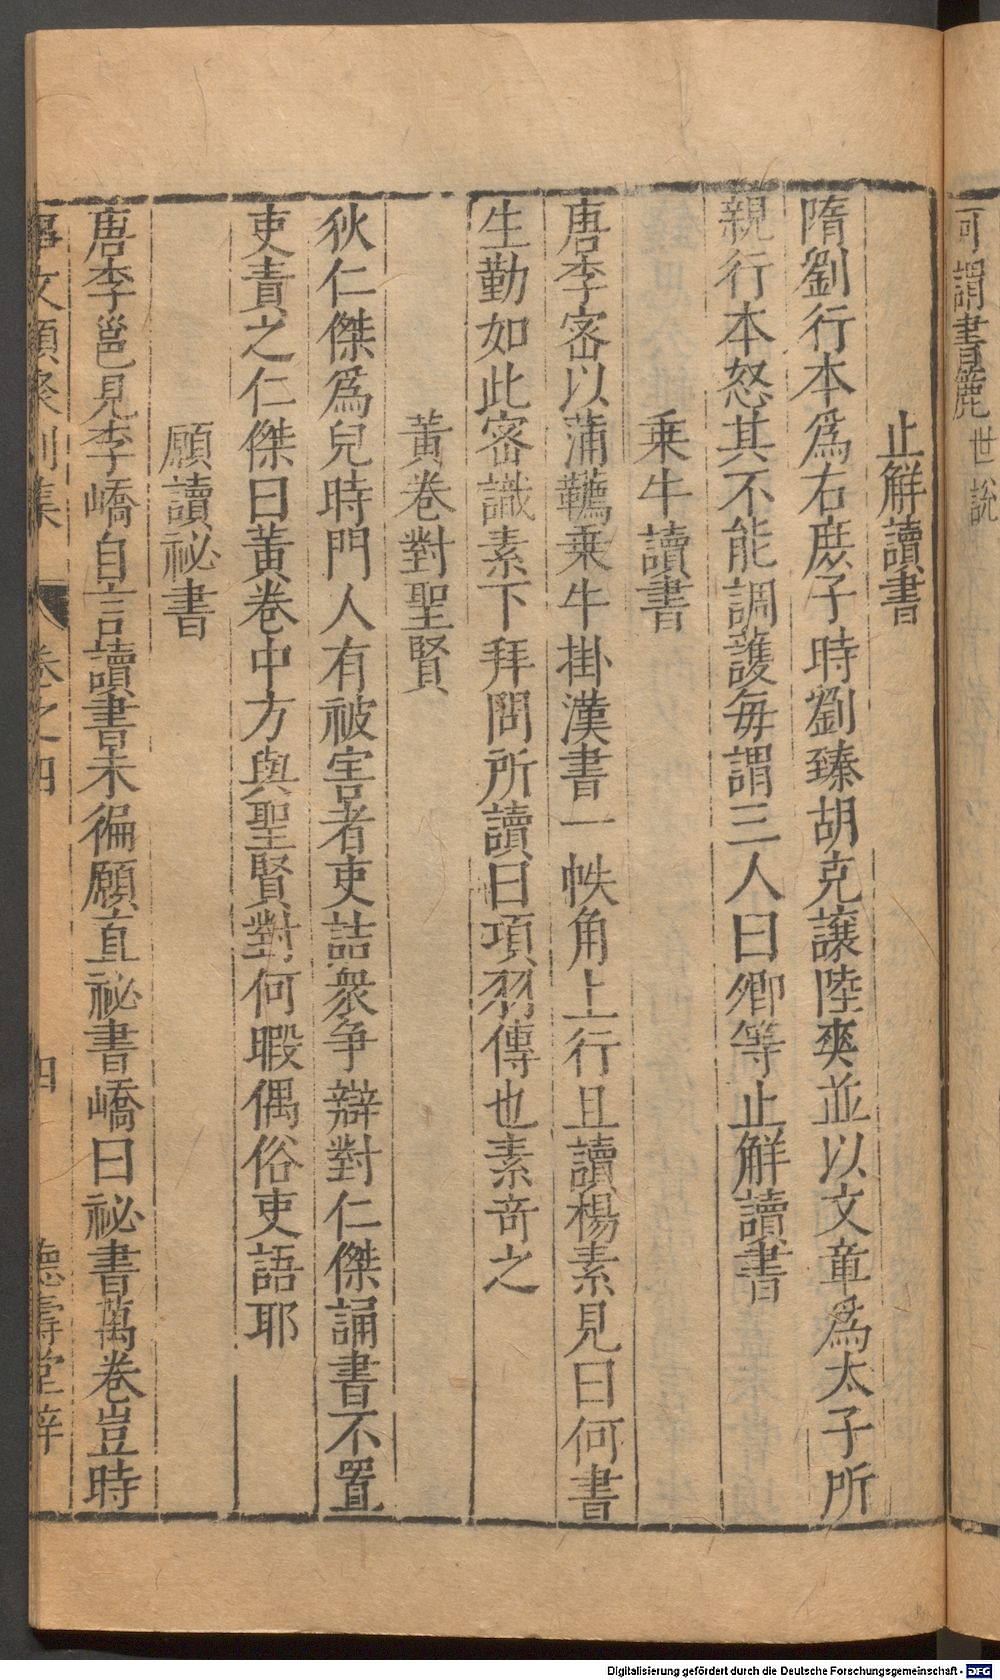 可謂書簏世說
止解讀書
隋劉行本爲右庶子時劉臻胡克讓陸爽並以文章爲太子所
親行本怒其不能調護每謂三人曰卿等止解讀書
乗牛讀書
唐李宻以蒲韉乗牛掛漢書一帙角上行且讀楊素見曰何書
生勤如此宻識素下拜問所讀曰項羽傳也素竒之
黃卷對聖賢
狄仁傑爲兒時門人有被害者吏詰衆争辯對仁傑誦書不置
吏責之仁傑曰黃卷中方與聖賢對何暇偶俗吏語耶
願讀祕書
唐李邕見李嶠自言讀書未徧願直祕書嶠曰祕書萬卷豈時
事文類聚別集 卷之四 四 德壽堂梓
Digitalisierung gefördert durch die Deutsche Forschungsgemeinschaft - DFG